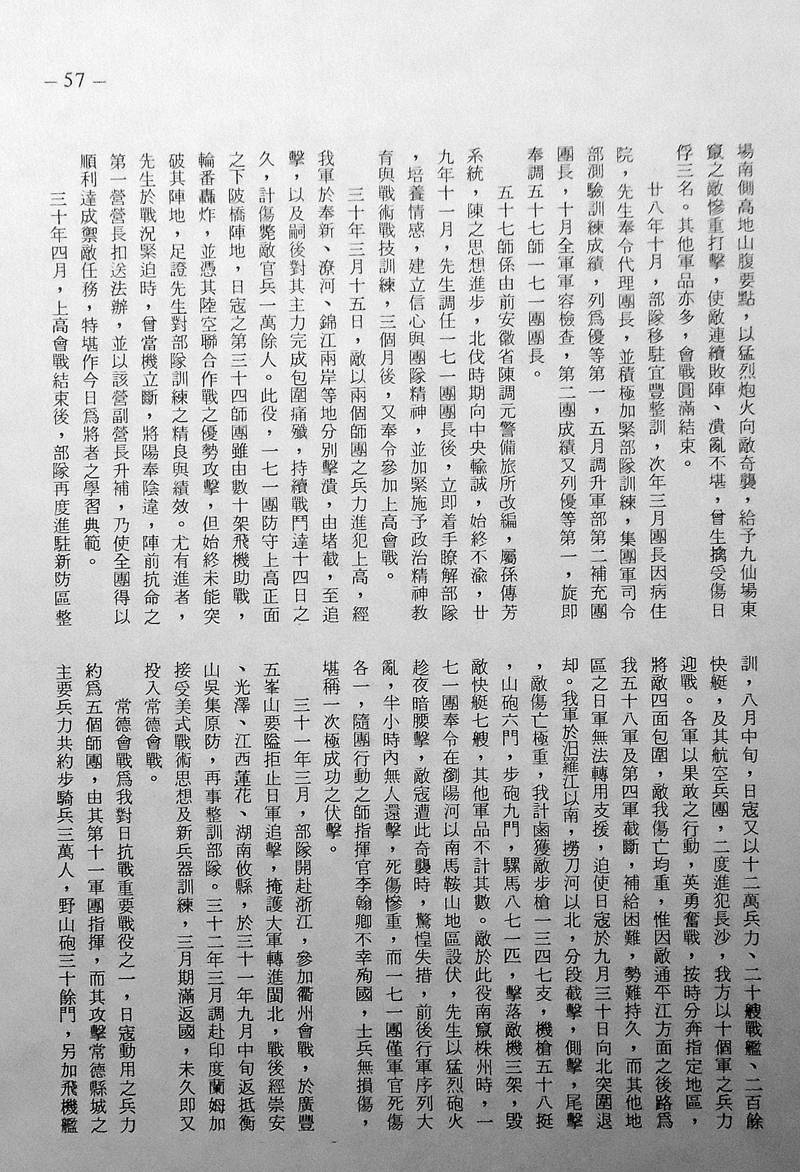 — 57 —
場南側高地山腹要點，以猛烈炮火向敵奇襲，給予九仙場東
竄之敵慘重打擊，使敵連續敗陣、潰亂不堪，曾生擒受傷日
俘三名。其他軍品亦多，會戰圓滿結束。
廿八年十月，部隊移駐宜豐整訓，次年三月團長因病住
院，先生奉令代理團長，並積極加緊部隊訓練，集團軍司令
部測驗訓練成績，列爲優等第一，五月調升軍部第二補充團
團長，十月全軍軍容檢查，第二團成績又列優等第一，旋即
奉調五十七師一七一團團長。
五十七師係由前安徽省陳調元警備旅所改編，屬孫傳芳
系統，陳之思想進步，北伐時期向中央輸誠，始終不渝，廿
九年十一月，先生調任一七一團團長後，立即着手瞭解部隊
，培養情感，建立信心與團隊精神，並加緊施予政治精神教
育與戰術戰技訓練，三個月後，又奉令參加上高會戰。
三十年三月十五日，敵以兩個師團之兵力進犯上高，經
我軍於奉新、潦河、錦江兩岸等地分別擊潰，由堵截，至追
擊，以及嗣後對其主力完成包圍痛殲，持續戰鬥達十四日之
久，計傷斃敵官兵一萬餘人。此役，一七一團防守上高正面
之下陂橋陣地，日寇之第三十四師團雖由數十架飛機助戰，
輪番轟炸，並憑其陸空聯合作戰之優勢攻擊，但始終未能突
破其陣地，足證先生對部隊訓練之精良與績效。尤有進者，
先生於戰況緊迫時，曾當機立斷，將陽奉陰違，陣前抗命之
第一營營長扣送法辦，並以該營副營長升補，乃使全團得以
順利達成禦敵任務，特堪作今日爲將者之學習典範。
三十年四月，上高會戰結束後，部隊再度進駐新防區整
訓，八月中旬，日寇又以十二萬兵力、二十艘戰艦、二百餘
快艇，及其航空兵團，二度進犯長沙，我方以十個軍之兵力
迎戰。各軍以果敢之行動，英勇奮戰，按時分奔指定地區，
將敵四面包圍，敵我傷亡均重，惟因敵通平江方面之後路爲
我五十八軍及第四軍截斷，補給困難，勢難持久，而其他地
區之日軍無法轉用支援，迫使日寇於九月三十日向北突圍退
却。我軍於汨羅江以南，撈刀河以北，分段截擊，側擊，尾擊
，敵傷亡極重，我計鹵獲敵步槍一三四七支，機槍五十八挺
，山砲六門，步砲九門，騾馬八七一匹，擊落敵機三架，毀
敵快艇七艘，其他軍品不計其數。敵於此役南竄株州時，一
七一團奉令在瀏陽河以南馬鞍山地區設伏，先生以猛烈砲火
趁夜暗腰擊，敵寇遭此奇襲時，驚惶失措，前後行軍序列大
亂，半小時內無人還擊，死傷慘重，而一七一團僅軍官死傷
各一，隨團行動之師指揮官李翰卿不幸殉國，士兵無損傷，
堪稱一次極成功之伏擊。
三十一年三月，部隊開赴浙江，參加衢州會戰，於廣豐
五峯山要隘拒止日軍追擊，掩護大軍轉進閩北，戰後經崇安
、光澤、江西蓮花、湖南攸縣，於三十一年九月中旬返抵衡
山吳集原防，再事整訓部隊。三十二年三月調赴印度蘭姆加
接受美式戰術思想及新兵器訓練，三月期滿返國，未久即又
投入常德會戰。
常德會戰爲我對日抗戰重要戰役之一，日寇動用之兵力
約爲五個師團，由其第十一軍團指揮，而其攻擊常德縣城之
主要兵力共約步騎兵三萬人，野山砲三十餘門，另加飛機艦